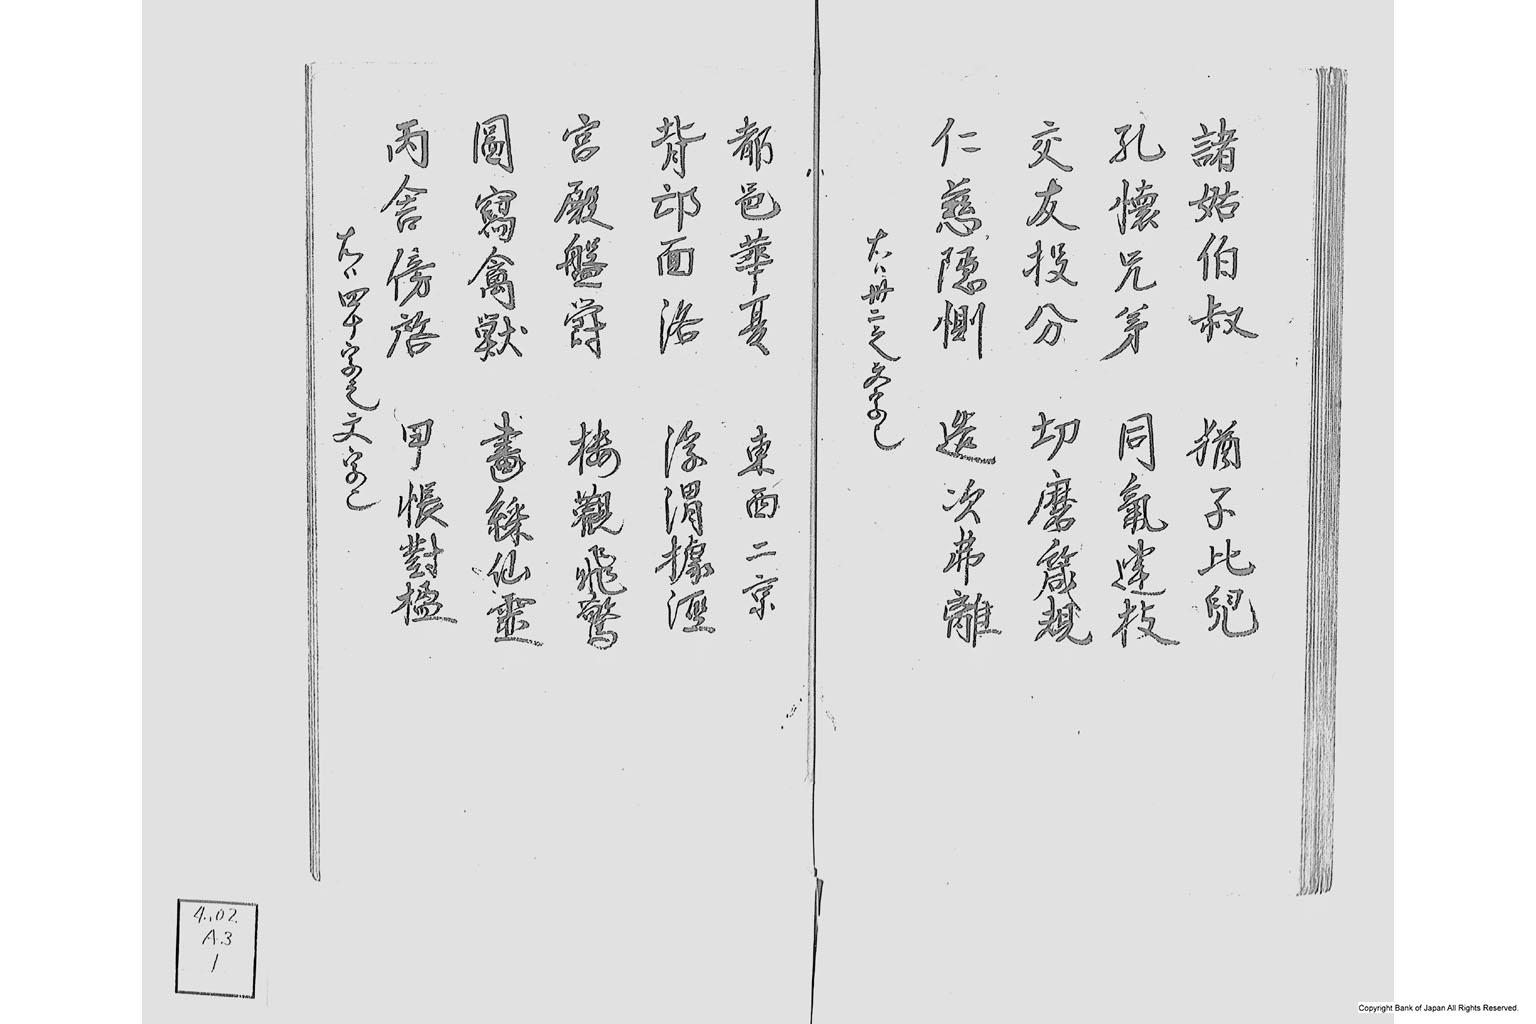 諸姑伯叔　猶子比兒
孔懷兄弟　同氣連枝
交友投分　切磨箴規
仁慈隠惻　造次弗離
右ハ卅二之文字也
都邑華夏　東西二京
背邙面洛　浮渭據涇
宮殿盤欝　楼觀飛驚
圖寫禽獸　畵綵仙靈
丙舎傍啓　甲帳對楹
右ハ四十字之文字也
4.02
A.3
1
Copyright Bank of Japan All Rights Reserved.